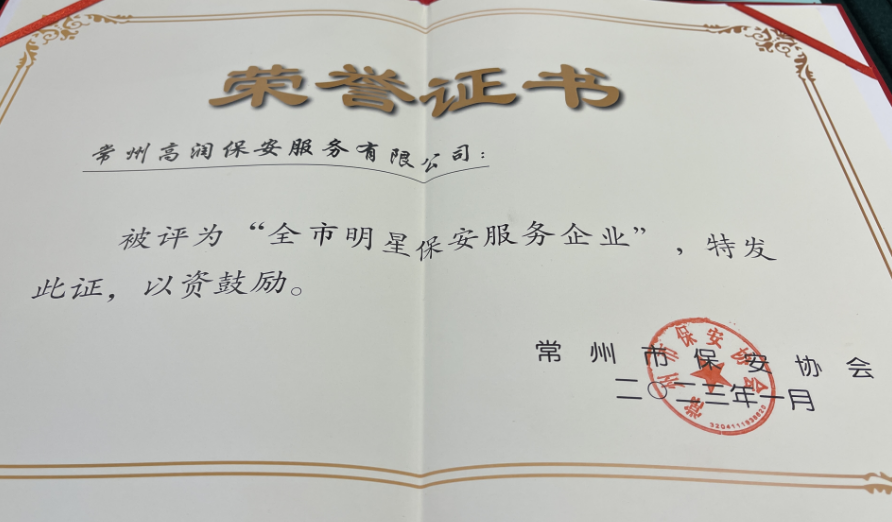 荣誉证书
常州高润保安服务有限公司：
被评为“全市明星保安服务企业”，特发
此证，以资鼓励。
常州市保安协会
二〇二三年一月
常州市保安协会